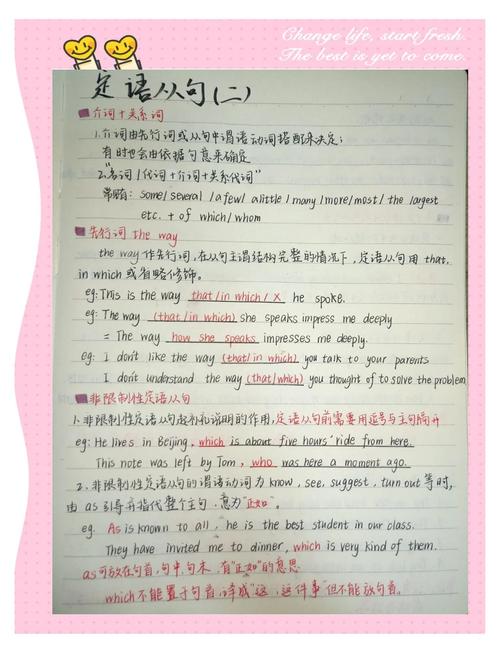 Change life, start fresh.
The best is yet to come.
定语从句(二)
介词+关系词
1.介词由先行词或从句中谓语动词搭配来决定;
有时也会由依据句意来确定
2."名词/代词+介词+关系代词"
常见有: some/several /a few/ a little / many /more/most/ the largest
etc. + of which/whom
先行词 the way
the way 作先行词,在从句主谓结构完整的情况下,定语从句用 that,
in which 或省略修饰。
eg: This is the way that / in which / X he spoke.
eg: The way (that/in which) she speaks impress me deeply
= The way how she speaks impresses me deeply.
eg: I don't like the way (that/in which) you talk to your parents
I don't understand the way (that/which) you thought of to solve the problem
非限制性定语从句
1.非限制性定语从句起补充说明的作用,定语从句前需要用逗号与主句隔开
eg: He lives in Beijing, which is about five hours' ride from here.
This note was left by Tom, who was here a moment ago.
2. 非限制性定语从句的谓语动词为 know, see, suggest, turn out 等时,
由 as 引导并指代整个主句,意为"正如"。
eg. As is known to all, he is the best student in our class.
They have invited me to dinner, which is very kind of them.
as可放在句首,句中,句末,有"正如"的意思
which不能置于句首,译成"这,这件事"但不能放句首。